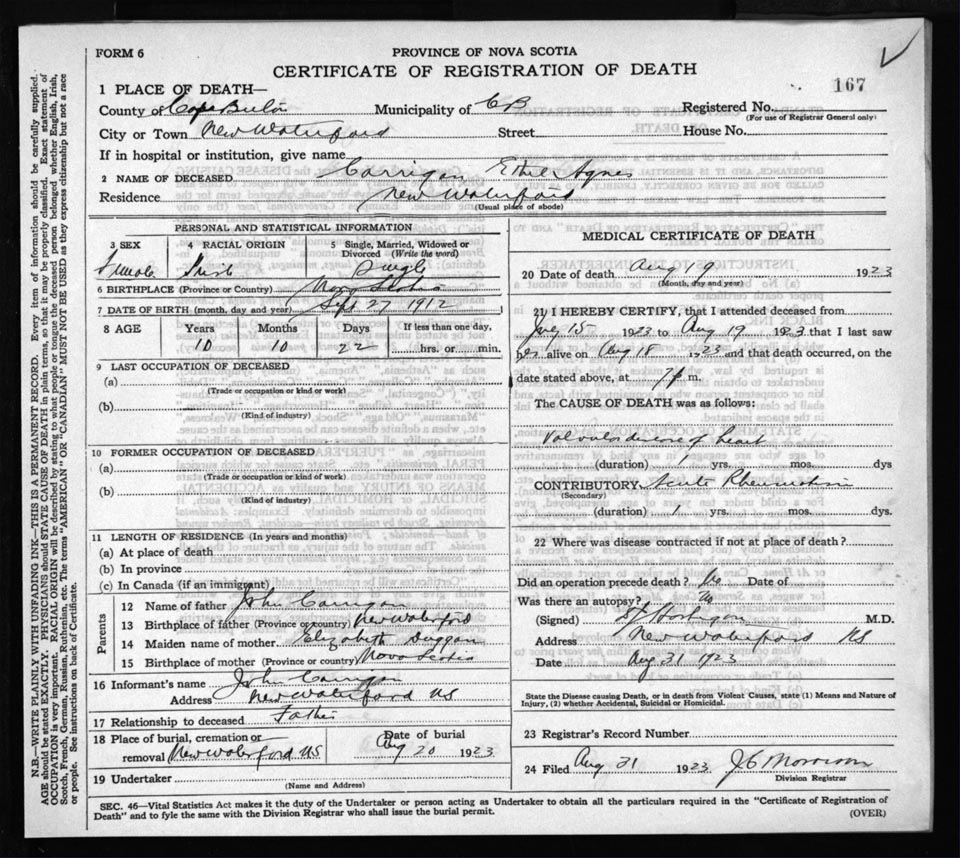 FORM 6
PROVINCE OF NOVA SCOTIA
CERTIFICATE OF REGISTRATION OF DEATH
167
1 PLACE OF DEATH—
County of Cape Breton Municipality of CB Registered No.
(For use of Registrar General only)
City or Town New Waterford Street House No.
If in hospital or institution, give name
2 NAME OF DECEASED Corrigan Ethel Agnes
Residence New Waterford
(Usual place of abode)
PERSONAL AND STATISTICAL INFORMATION
3 SEX 4 RACIAL ORIGIN 5 Single, Married, Widowed or Divorced (Write the word)
Female Irish Single
6 BIRTHPLACE (Province or Country) Nova Scotia
7 DATE OF BIRTH (month, day and year) Sept 27 1912
8 AGE Years Months Days If less than one day,
10 10 22 hrs. or min.
9 LAST OCCUPATION OF DECEASED
(a)
(Trade or occupation or kind of work)
(b)
(Kind of industry)
10 FORMER OCCUPATION OF DECEASED
(a)
(Trade or occupation or kind of work)
(b)
(Kind of industry)
11 LENGTH OF RESIDENCE (In years and months)
(a) At place of death
(b) In province
(c) In Canada (if an immigrant)
Parents
12 Name of father John Corrigan
13 Birthplace of father (Province or country) New Waterford
14 Maiden name of mother Elizabeth Duggan
15 Birthplace of mother (Province or country) Nova Scotia
16 Informant's name John Corrigan
Address New Waterford NS
17 Relationship to deceased Father
18 Place of burial, cremation or removal New Waterford NS Date of burial Aug 20 1923
19 Undertaker
(Name and Address)
MEDICAL CERTIFICATE OF DEATH
20 Date of death Aug 19 1923
(Month, day and year)
21 I HEREBY CERTIFY, that I attended deceased from
15 1923 to Aug 19 1923 that I last saw
her alive on Aug 18 1923 and that death occurred, on the
date stated above, at 7 p m.
The CAUSE OF DEATH was as follows:
Valvular disease of heart
(duration) 1 yrs. mos. dys
CONTRIBUTORY Acute Rheumatism
(Secondary)
(duration) 1 yrs. mos. dys.
22 Where was disease contracted if not at place of death?
Did an operation precede death? No Date of
Was there an autopsy? No
(Signed) M.D.
Address New Waterford NS
Date Aug 31 1923
State the Disease causing Death, or in death from Violent Causes, state (1) Means and Nature of
Injury, (2) whether Accidental, Suicidal or Homicidal.
23 Registrar's Record Number
24 Filed Aug 31 1923 J C Morrison
Division Registrar
SEC. 46—Vital Statistics Act makes it the duty of the Undertaker or person acting as Undertaker to obtain all the particulars required in the "Certificate of Registration of
Death" and to fyle the same with the Division Registrar who shall issue the burial permit. (OVER)
N.B.—WRITE PLAINLY WITH UNFADING INK—THIS IS A PERMANENT RECORD. Every item of information should be carefully supplied.
AGE should be stated EXACTLY. PHYSICIANS should STATE CAUSE OF DEATH in plain terms, so that it may be properly classified. Exact statement of
OCCUPATION is very important. RACIAL ORIGIN will be described by stating to what people or tongue the deceased person belonged whether English, Irish,
Scotch, French, German, Russian, Ruthenian, etc. The terms "AMERICAN" OR "CANADIAN" MUST NOT BE USED as they express citizenship but not a race
or people. See instructions on back of Certificate.